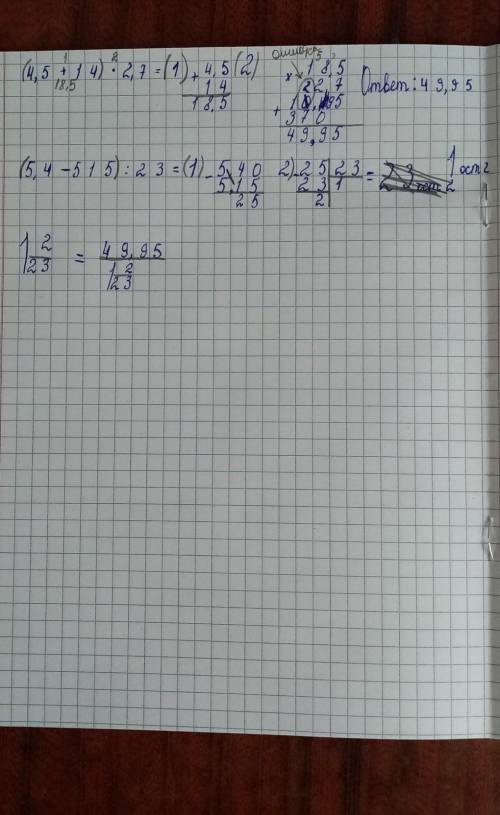 (4,5 + 14) · 2,7 = (1) + 4,5 (2) ошибка × 18,5
1 2 14 2,7 Ответ: 49,95
18,5 18,5 + 1295
370
49,95
(5,4 - 515) : 23 = (1) - 5,40 2) - 25 | 23 = 1 ост 2
5,15 23 | 1
25 2
1 2/23 = 49,95 / 1 2/23